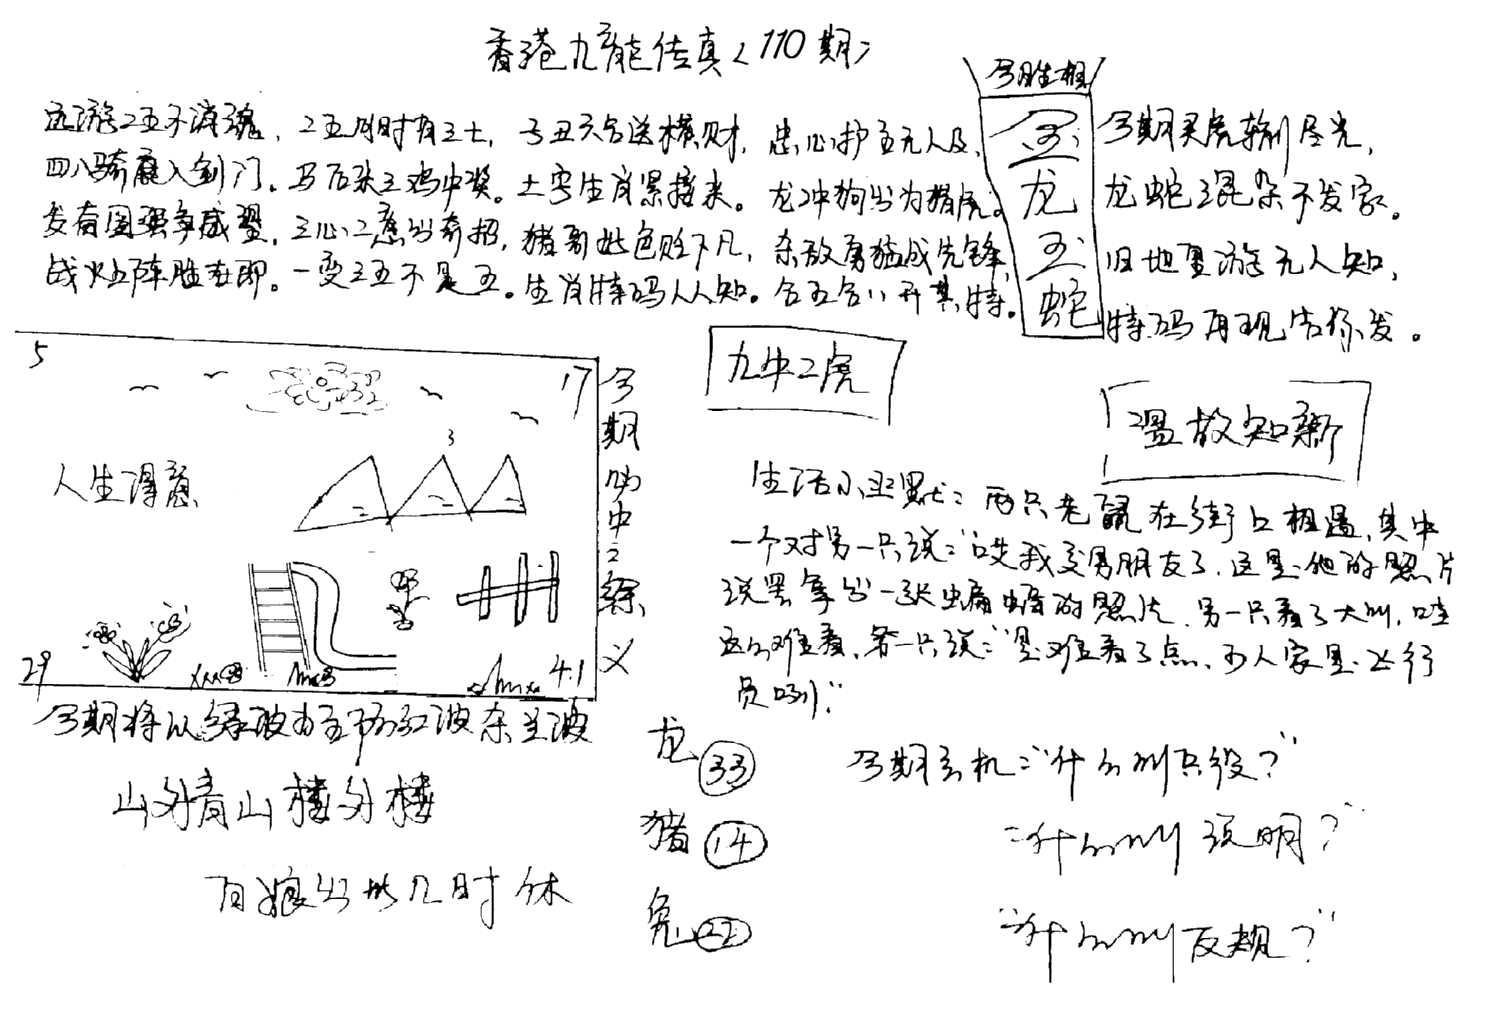 香港九龍传真〈110期〉
今期生相
远游二五不消魂，2五月时有三七，子丑六合送横财，忠心护主无人及，
四八骑鹿入剑门。马后来三鸡中奖。土字生肖紧接来。龙冲狗出为猪虎。
发奋图强争威望，三心二意出奇招，猪哥 色贬下凡，杀敌勇猛成先锋，
战火阵胜在即。一变三五不是五。生肖特码人人知。合五合八开其特。
金
龙
玉
蛇
今期买虎输尽光，
龙蛇混杂不发家。
旧地重游无人知，
特码再现告你发。
5
17
3
人生得意
29
41
今期 中2 义
九牛二虎
温故知新
生活小幽默：两只老鼠在街口相遇，其中
一个对另一只说：“哎我交男朋友了，这是他的照片
说罢拿出一张蝙蝠的照片，另一只看了大叫，哇
这么难看，第一只说：“是难看了点，可人家是飞行
员咧”
今期将以绿波为主防红波杂兰波
山外青山楼外楼
百娘出 几时休
龙 33
猪 14
兔 22
今期玄机：“什么叫只役？”
：“什么叫说明？”
“什么叫反规？”